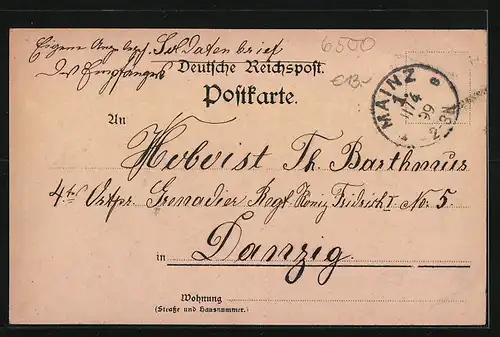 Soldatenbrief
Eigene Ang. 6500
des Empfängers
Deutsche Reichspost.
€13.-
Postkarte.
MAINZ
1.
11/4
99
2-3N
An
Hoboist Th. Barthmus
4te Ostpr. Grenadier Regt. König Fridrich I No 5.
in Danzig.
Wohnung
(Straße und Hausnummer.)